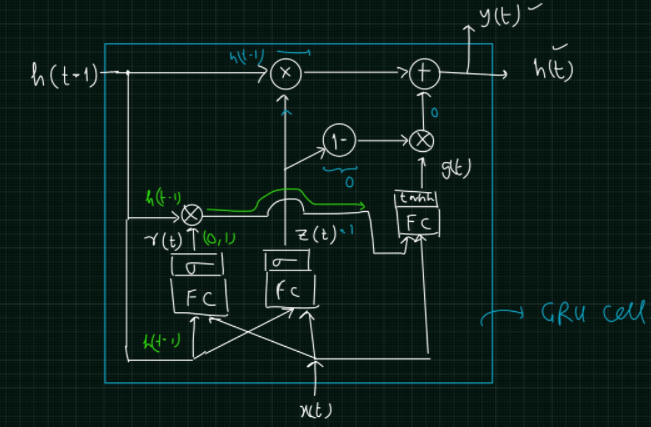 y(t)
h(t-1)
h(t-1)
×
+
h(t)
0
1-
×
0
g(t)
h(t-1)
×
tanh
FC
r(t)
(0,1)
z(t)=1
σ
FC
σ
FC
GRU Cell
h(t-1)
x(t)